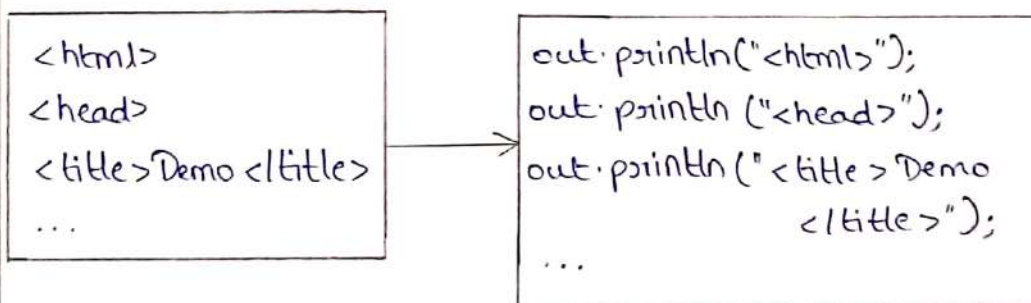 <html>
<head>
<title>Demo </title>
...
out.println("<html>");
out.println ("<head>");
out.println ("<title> Demo
</title>");
...